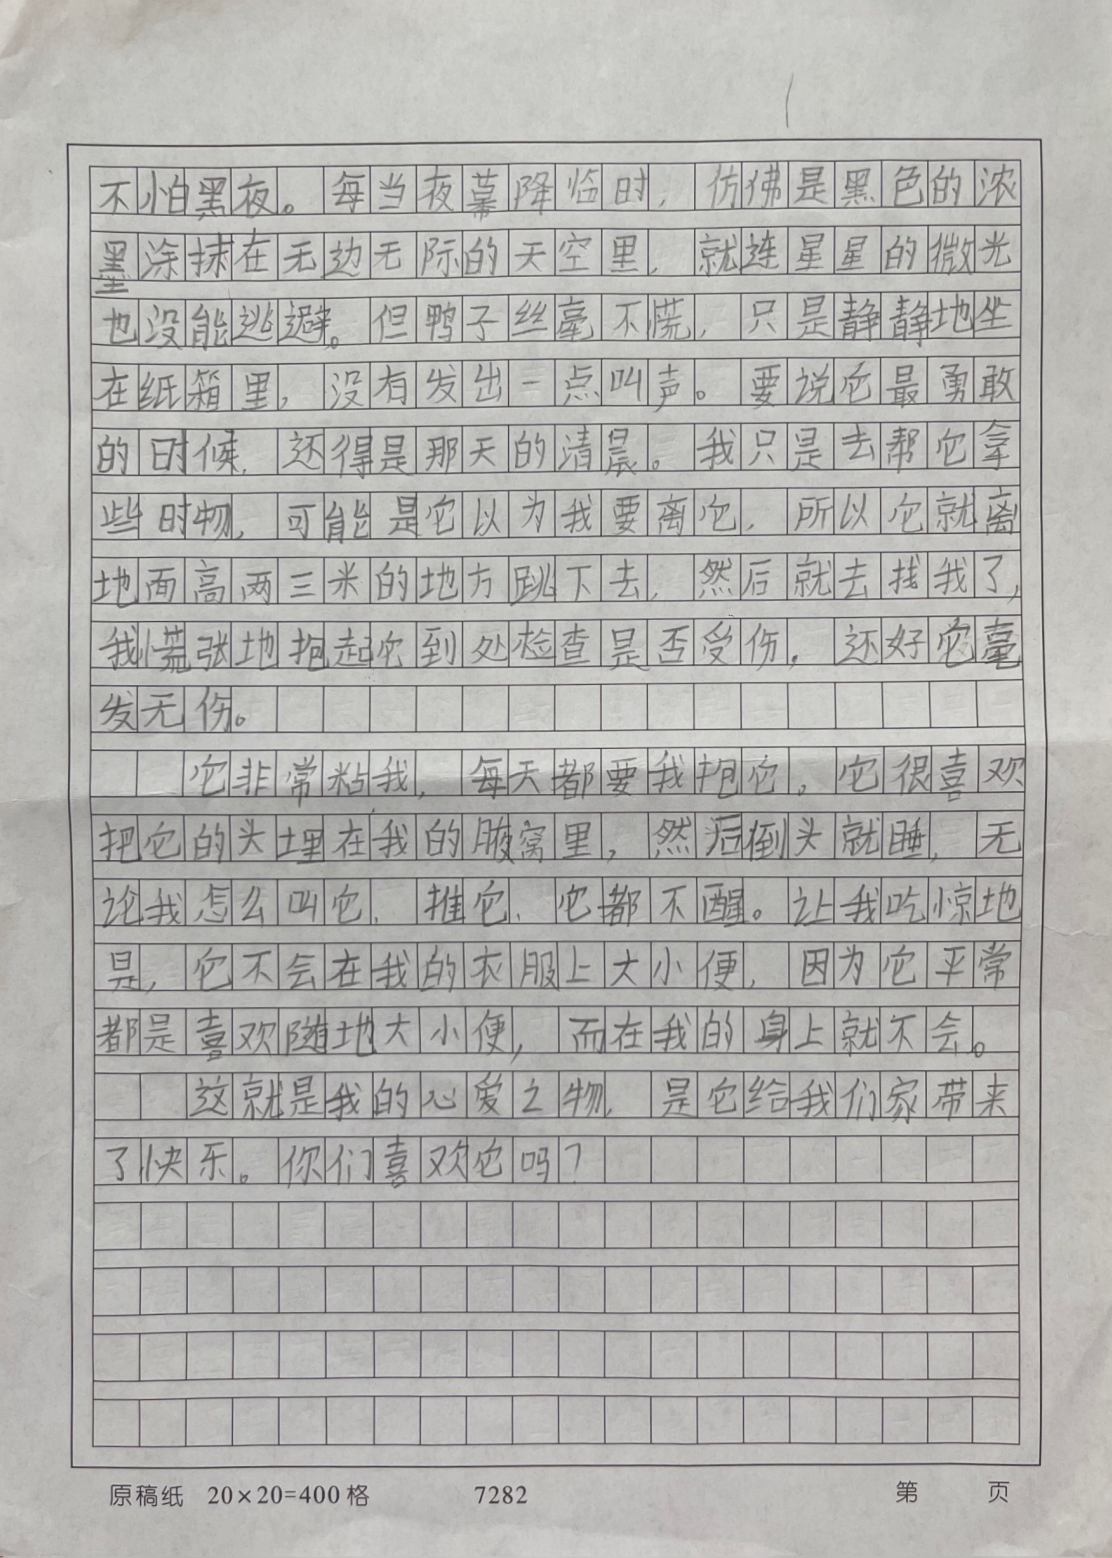 不怕黑夜。每当夜幕降临时，仿佛是黑色的浓
墨涂抹在无边无际的天空里，就连星星的微光
也没能逃避。但鸭子丝毫不慌，只是静静地坐
在纸箱里，没有发出一点叫声。要说它最勇敢
的时候，还得是那天的清晨。我只是去帮它拿
些时物，可能是它以为我要离它，所以它就离
地面高两三米的地方跳下去，然后就去找我了，
我慌张地抱起它到处检查是否受伤，还好它毫
发无伤。
它非常粘我，每天都要我抱它。它很喜欢
把它的头埋在我的腋窝里，然后倒头就睡，无
论我怎么叫它、推它、它都不醒。让我吃惊地
是，它不会在我的衣服上大小便，因为它平常
都是喜欢随地大小便，而在我的身上就不会。
这就是我的心爱之物，是它给我们家带来
了快乐。你们喜欢它吗？
原稿纸 20×20=400格 7282 第 页